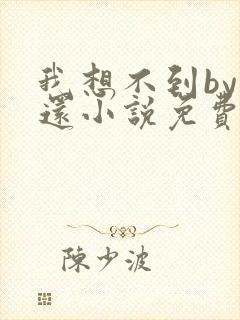 我想不到by
還小說免費
陳少波